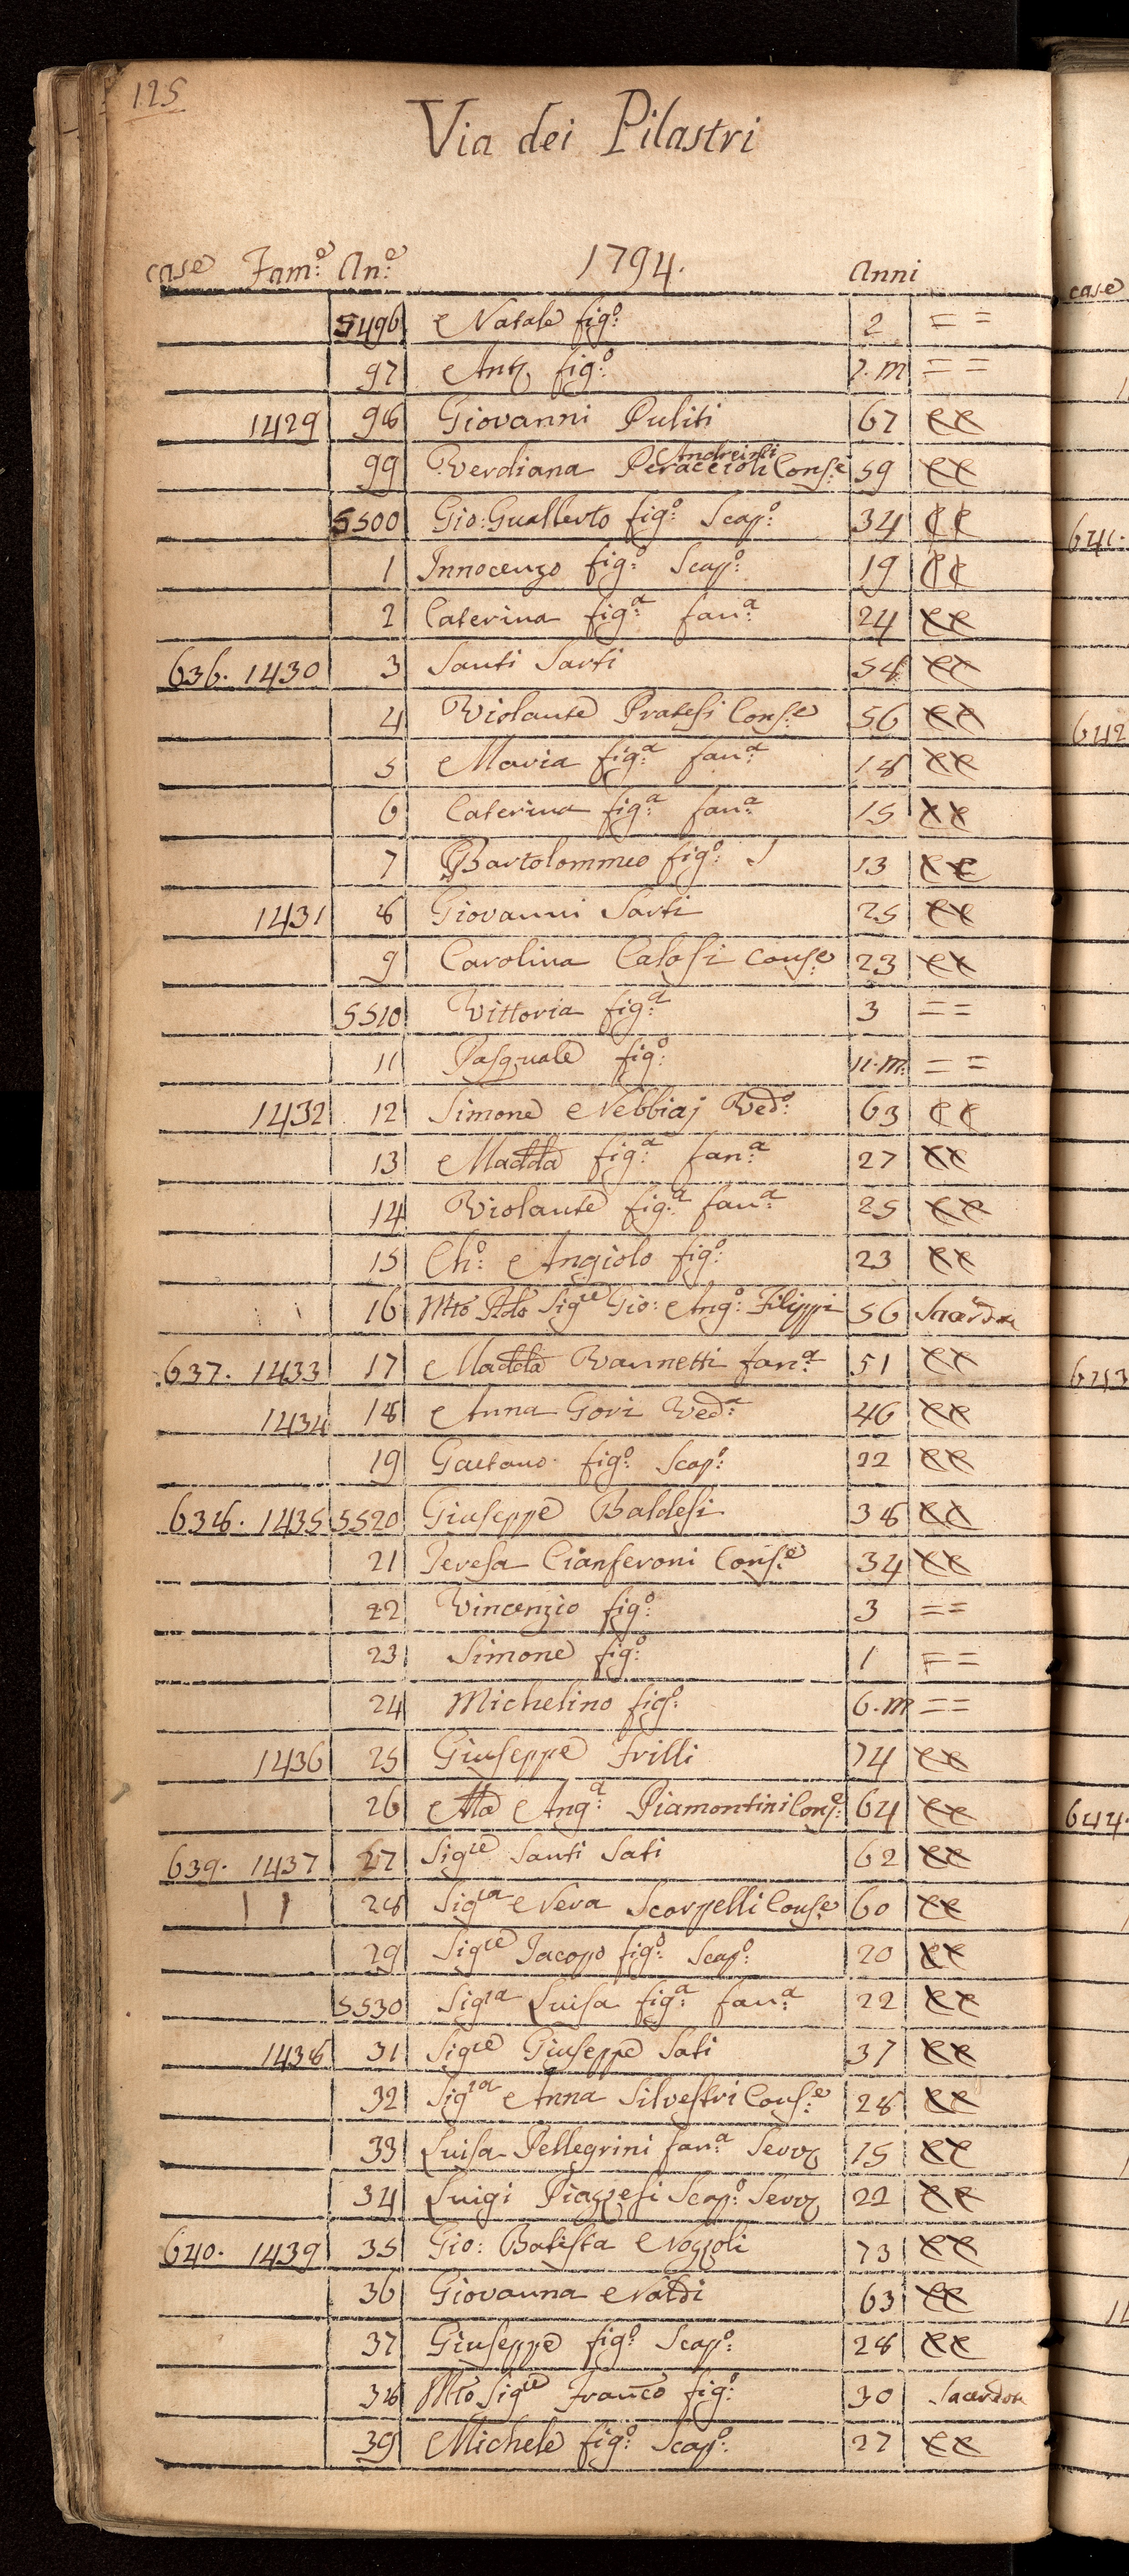 125
Via dei Pilastri
case Fam:e An:e 1794. Anni
5496 Natale fig:o 2 = =
97 Ant. fig:o m = =
1429 98 Giovanni Puliti 67 CC
99 Verdiana Peraccioli Andreini Cons:e 59 CC
5500 Gio: Gualberto fig:o Scap:o 34 CC
1 Innocenzo fig:o Scap:o 19 CC
2 Caterina fig:a fan:a 24 CC
636. 1430 3 Santi Sarti 58 CC
4 Violante Pratesi Cons:e 56 CC
5 Maria fig:a fan:a 18 CC
6 Caterina fig:a fan:a 15 CC
7 Bartolommeo fig:o S 13 CC
1431 8 Giovanni Sarti 25 CC
9 Carolina Calosi Cons:e 23 CC
5510 Vittoria fig:a 3 = =
11 Pasquale fig:o 11.m. = =
1432 12 Simone Nebbiaj Ved:o 63 CC
13 Madda fig:a fan:a 27 CC
14 Violante fig:a fan:a 25 CC
15 Ch:o Angiolo fig:o 23 CC
16 Mto Rdo Sigre Gio: Ang:o Filippi 56 Sacerdon
637. 1433 17 Madda Vannetti fan:a 51 CC
1434 18 Anna Gori Ved:a 46 CC
19 Gaetano fig:o Scap:o 22 CC
638. 1435 5520 Giuseppe Baldesi 38 CC
21 Teresa Cianferoni Cons:e 34 CC
22 Vincenzio fig:o 3 = =
23 Simone fig:o 1 = =
24 Michelino fig:o 6.m = =
1436 25 Giuseppe Frilli 74 CC
26 Ma Ang:a Piamontini Cons:e 64 CC
639. 1437 27 Sigre Santi Sati 62 CC
28 Sigra Nera Scarpelli Cons:e 60 CC
29 Sigre Jacopo fig:o Scap:o 20 CC
5530 Sigra Luisa fig:a fan:a 22 CC
1438 31 Sigre Giuseppe Sati 37 CC
32 Sigra Anna Silvestri Cons:e 28 CC
33 Luisa Pellegrini fan:a Serv 15 CC
34 Luigi Piazzesi Scap:o Serv 22 CC
640. 1439 35 Gio: Batista Nozzoli 73 CC
36 Giovanna Naldi 63 CC
37 Giuseppe fig:o Scap:o 28 CC
38 Mto Sigre Franco fig:o 30 Sacerdon
39 Michele fig:o Scap:o 27 CC
case
641.
642
643
644.